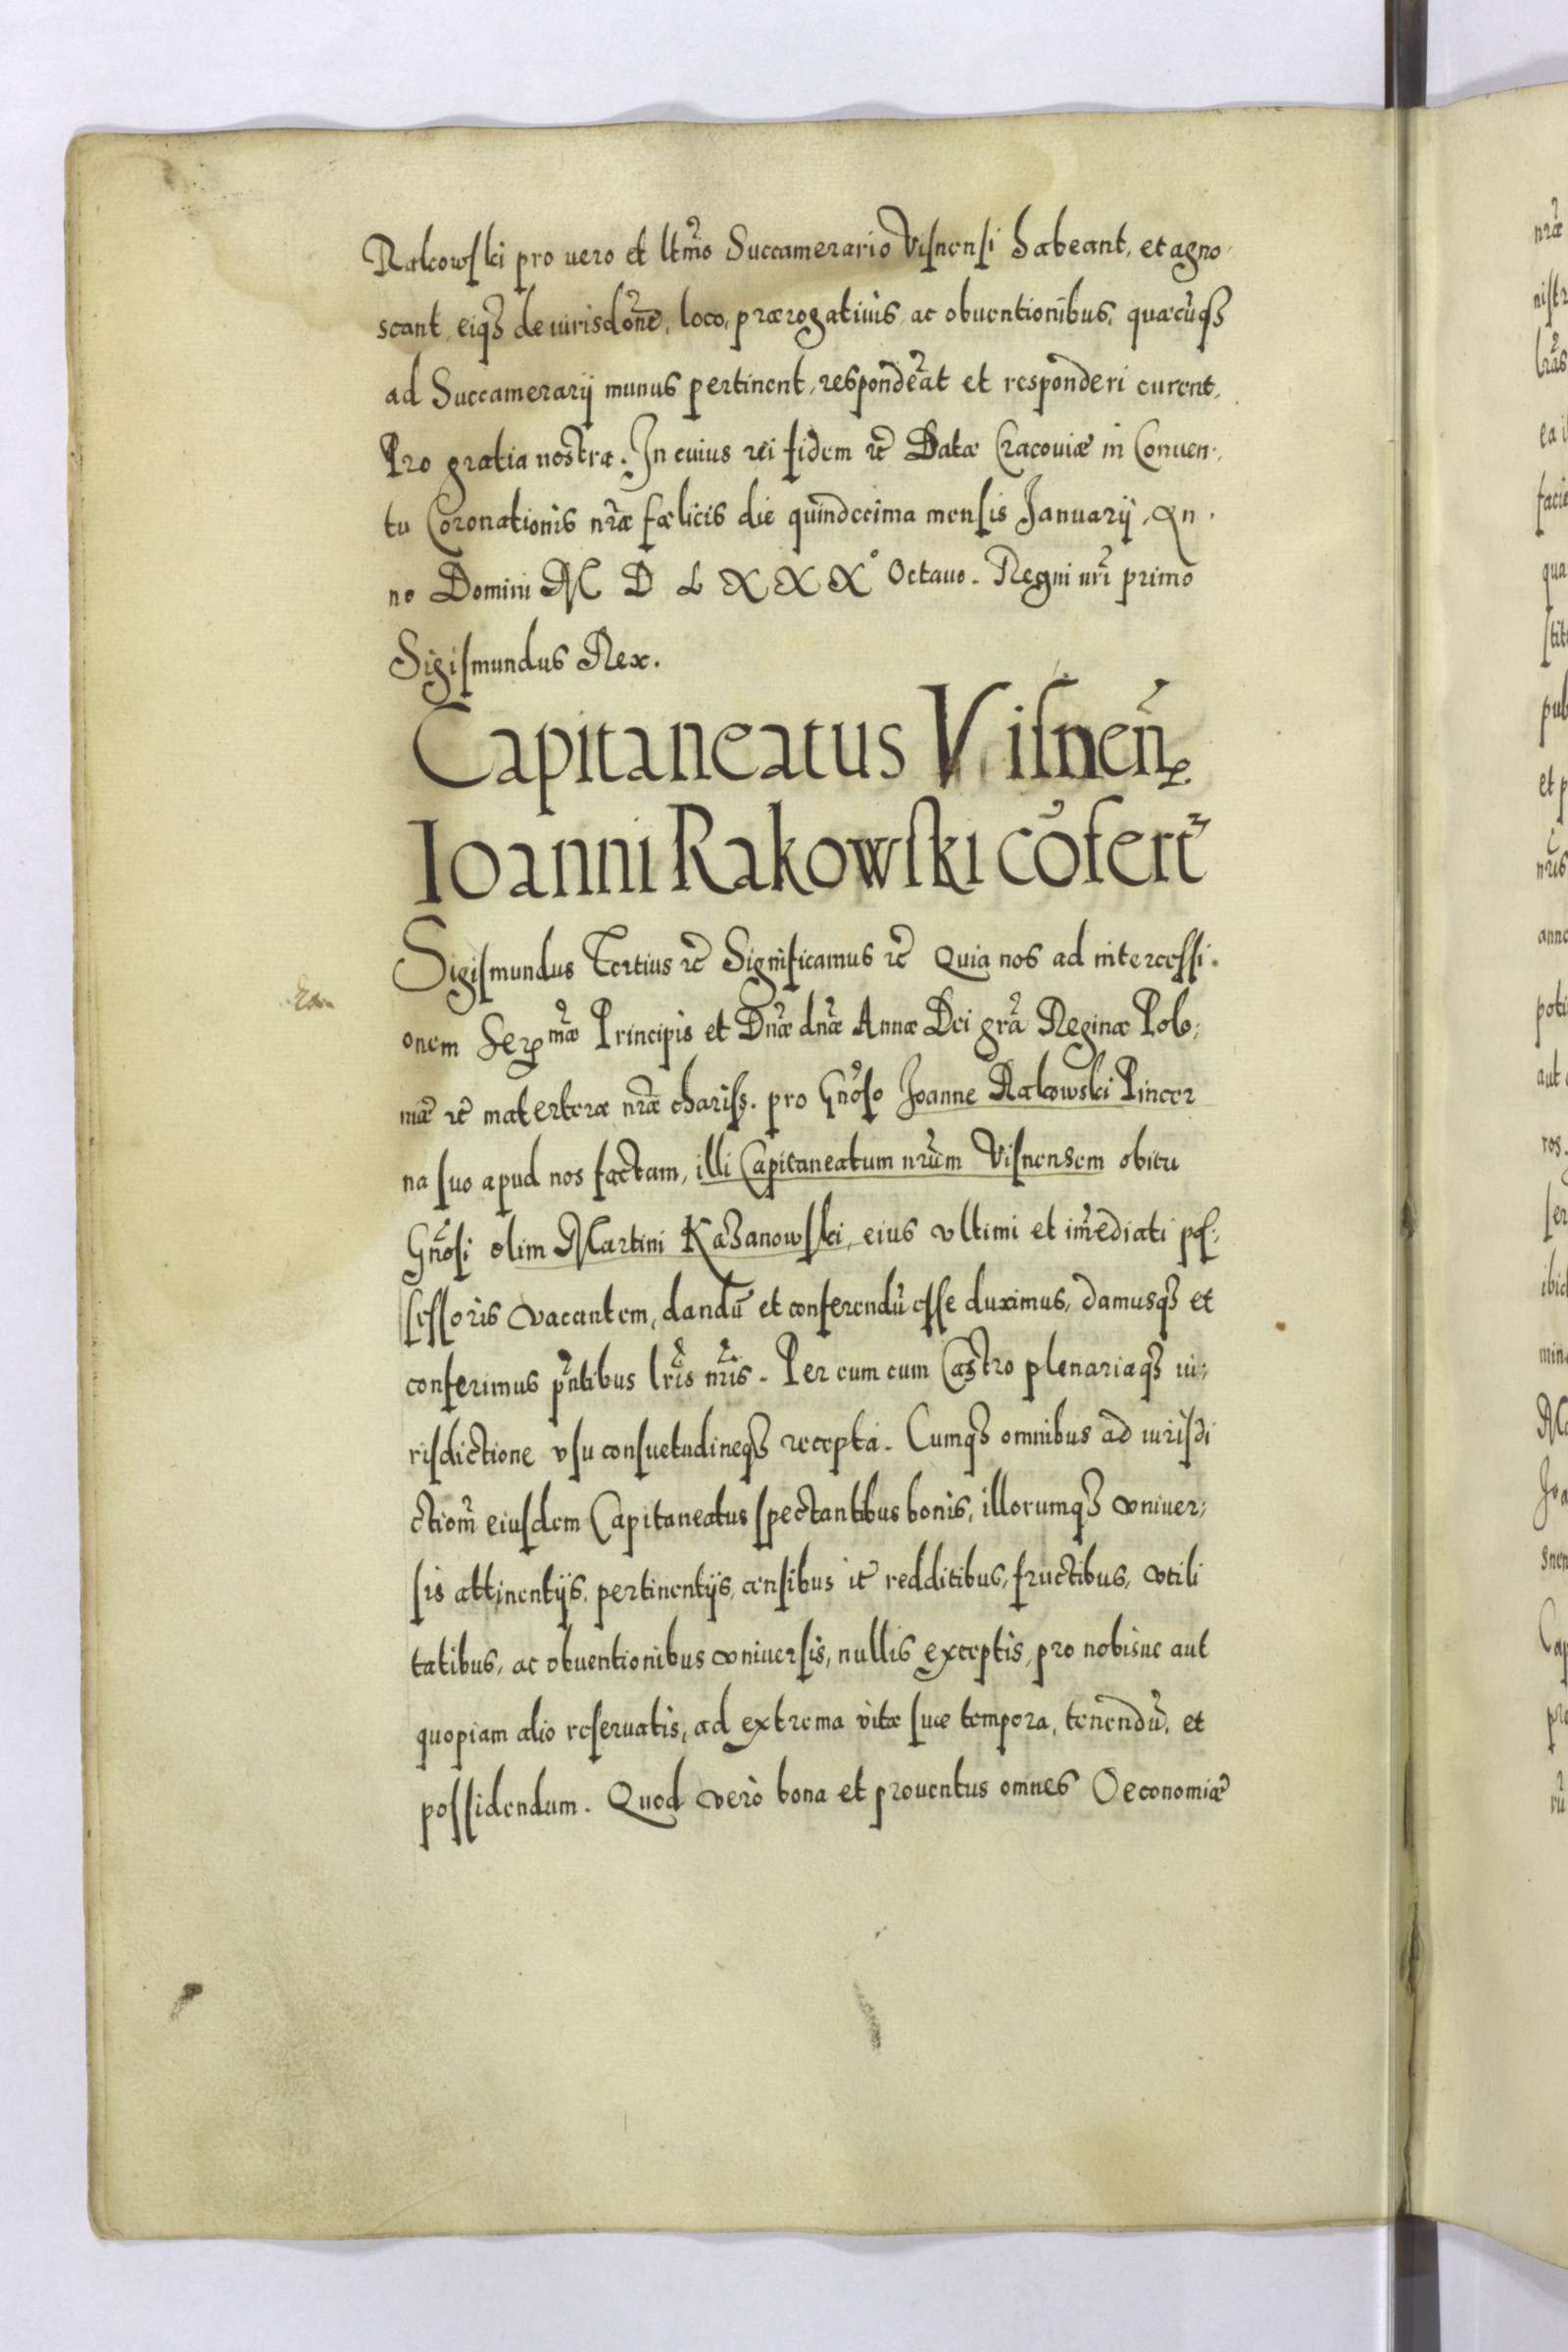 Rakowski pro uero et ltm̃o Succamerario Visnensi habeant, et agno
scant, eiqȝ de iurisdõne, loco, prærogatiuis ac obuentionibus, quæcũqȝ
ad Succamerarij munus pertinent, respondeãt et responderi curent,
Pro gratia nostra. In cuius rei fidem ꝛc̃ Datæ Cracouiæ in Conuen-
tu Coronationis nr̃æ fælicis die quindecima mensis Januarij, An
no Domini M D L X X X° Octauo. Regni nr̃i primo
Sigismundus Rex.
Capitaneatus Visneñ.
Ioanni Rakowski cõfert̃
Sigismundus Tertius ꝛc̃ Significamus ꝛc̃ Quia nos ad intercessi-
onem Ser mæ Principis et Dñæ dñæ Annæ Dei gr̃a Reginæ Polo;
niæ ꝛc̃ materteræ nr̃æ chariss. pro Gñoso Joanne Rakowski Pincer
na suo apud nos factam, illi Capitaneatum nr̃um Visnensem obitu
Gñosi olim Martini Kazanowski, eius vltimi et im̃ediati pos;
sessoris vacantem, dandũ et conferendũ esse duximus, damusqȝ et
conferimus pñtibus lr̃is nr̃is. Per eum cum Castro plenariaqȝ iu;
risdictione vsu consuetudineqȝ recepta. Cumqȝ omnibus ad iurisdi
ctiom̃ eiusdem Capitaneatus spectantibus bonis, illorumqȝ vniuer;
sis attinentijs, pertinentijs, censibus it̃ redditibus, fructibus, vtili
tatibus, ac obuentionibus vniuersis, nullis exceptis, pro nobisue aut
quopiam alio reseruatis, ad extrema vitæ suæ tempora, tenendũ, et
possidendum. Quod verò bona et prouentus omnes Oeconomiæ